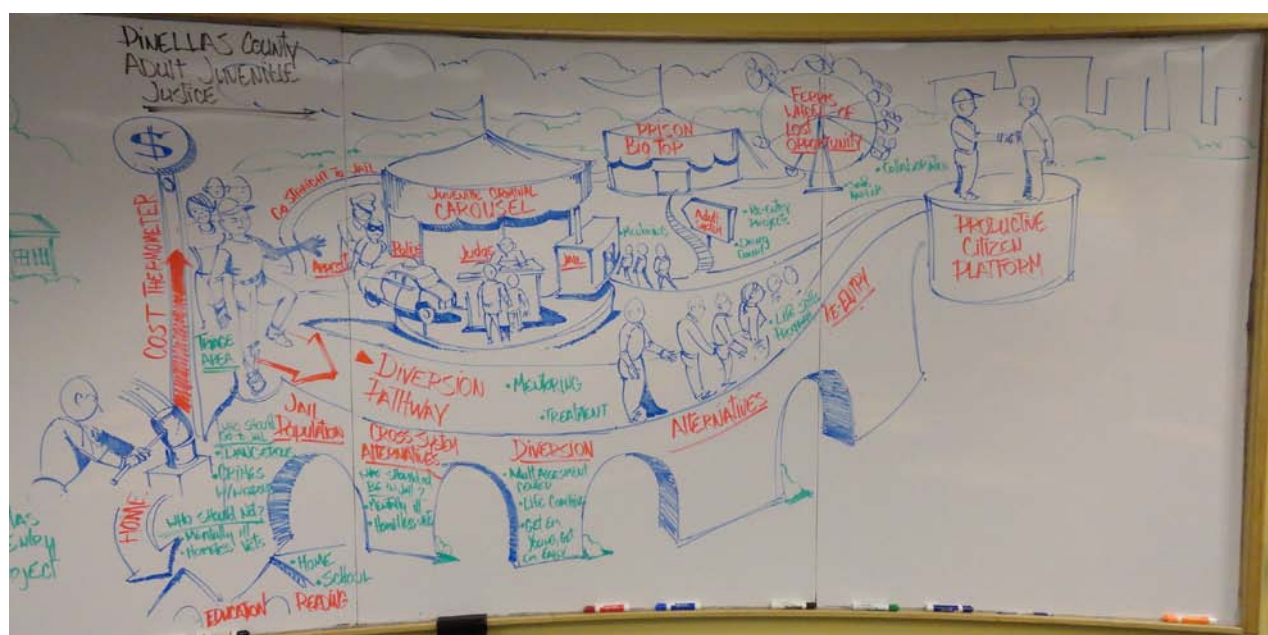 PINELLAS COUNTY
ADULT JUVENILE
JUSTICE
$
COST THERMOMETER
GO STRAIGHT TO JAIL
ARREST
POLICE
TRIAGE
AREA
JUVENILE CRIMINAL
CAROUSEL
JUDGE
JAIL
PRISON
BIG TOP
FERRIS
WHEEL OF
LOST
OPPORTUNITY
• COLLABORATION
• RE-ENTRY
PROJECTS
PRODUCTIVE
CITIZEN
PLATFORM
RE-ENTRY
• LIFE SKILLS
DIVERSION
PATHWAY
• MENTORING
• TREATMENT
ALTERNATIVES
JAIL
POPULATION
WHO SHOULD
GO TO JAIL
• DANGEROUS
• CRIMES
W/WEAPONS
WHO SHOULD NOT?
• MENTALLY ILL
• HOMELESS VETS
CROSS SYSTEM
ALTERNATIVES
WHO SHOULD NOT
BE IN JAIL?
• MENTALLY ILL
• HOMELESS VETS
DIVERSION
• ADULT ASSESMENT
CENTER
• LIFE COACHING
• GET EM
YOUNG, GET
EM EARLY
HOME
• HOME
• SCHOOL
EDUCATION
READING